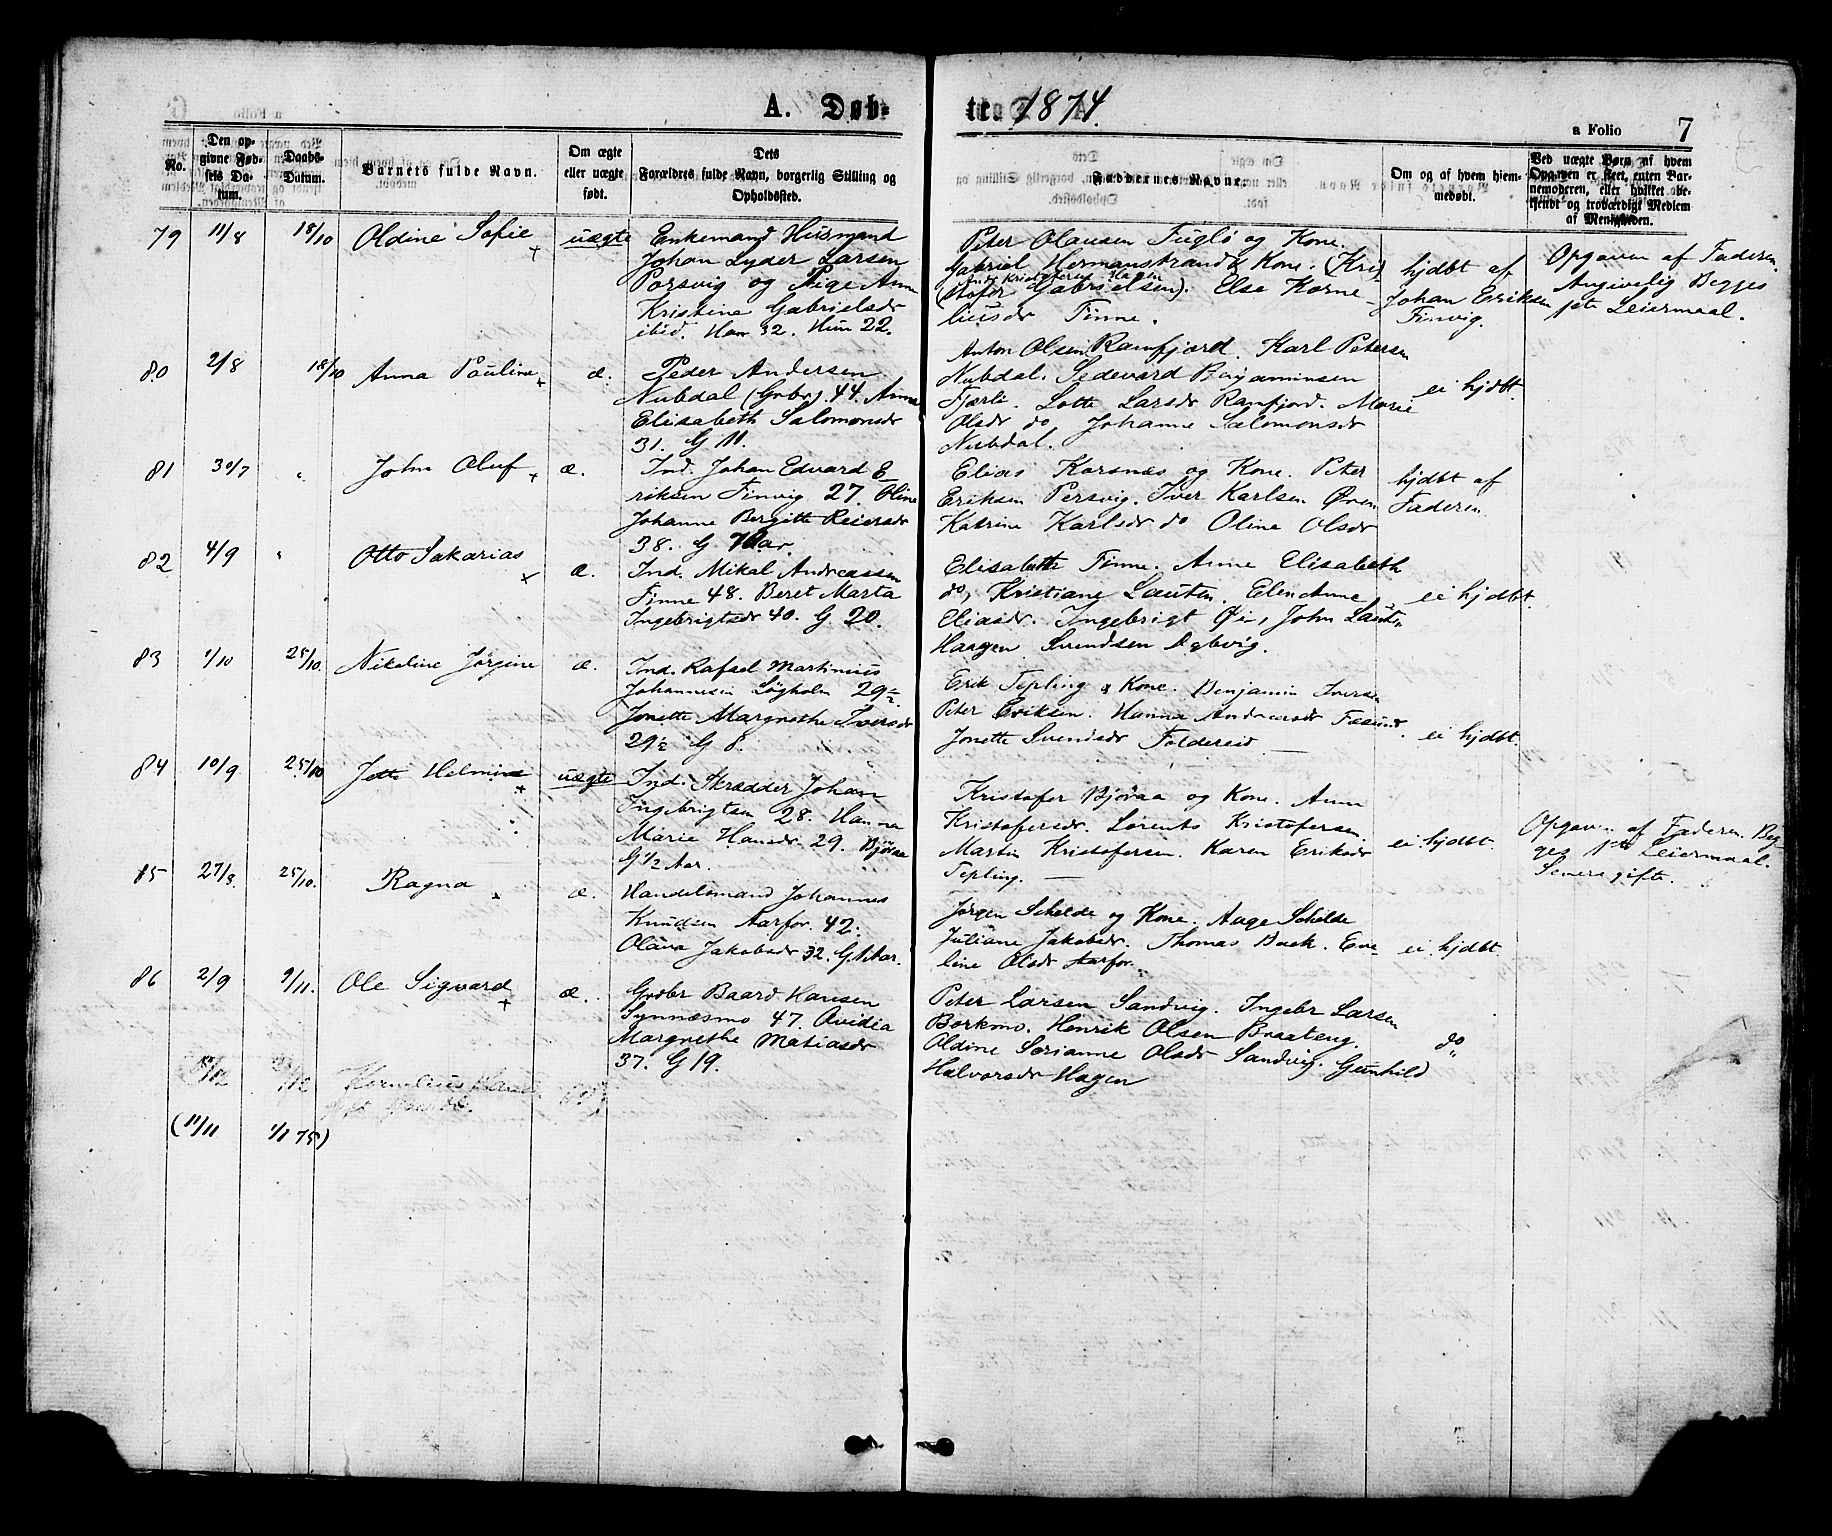 A. Døb- te. 1874.
a Folio 7
No.
Den op-
givne Fød-
sels Da-
tum.
Daabs-
Datum.
Barnets fulde Navn.
Om ægte
eller uægte
født.
Dets
Forældres fulde Navn, borgerlig Stilling og
Opholdssted.
Faddernes Navne.
Om og af hvem hjem-
medøbt.
Ved uægte Børn af hvem
Opgaven er skeet, enten Bar-
nemoderen, eller hvilket be-
kjendt og troværdigt Medlem
af Menigheden.
79 11/8 18/10 Oldine Sofie uægte
Enkemand Husmand
Johan Lyder Larsen
Porsvig og Pige Anne
Kristine Gabrielsdr
ibid. Ham 32. Hun 22.
Peter Olausen Fuglø og Kone.
Gabriel Hermanstrand & Kone. (Kri
Kristoferus Hagen
stofer Gabrielsen). Else Korne-
liusdr Finne.
hjdbt af
Johan Eriksen
Finvig.
Opgaven af Faderen.
Angivelig Begges
1ste Leiermaal.
80 2/8 18/10 Anna Pauline æ.
Peder Andersen
Nubdal (Grbr). 44. Anne
Elisabeth Salomonsdr
31. G 11.
Anton Olsen Ramfjord. Karl Petersen
Nubdal. Sedevard Benjaminsen
Fjærli. Lotte Larsdr Ramfjord. Marie
Olsdr do Johanne Salomonsdr
Nubdal.
ei hjdbt.
81 30/7 " John Oluf æ.
Ind. Johan Edvard E-
riksen Finvig 27. Oline
Johanne Bergitte Reiersdr
38. G Aar.
Elias Korsnæs og Kone. Peter
Eriksen Persvig. Iver Karlsen Øven
Katrine Karlsdr do Oline Olsdr
hjdbt af
Faderen.
82 4/9 " Otto Sakarias æ.
Ind. Mikal Andreassen
Finne 48. Beret Marta
Ingebrigtsdr 40. G 20.
Elisabeth Finne. Anne Elisabeth
do, Kristiane Lauten. Elen Anne
Eliasdr. Ingebrigt Øi, John Laut
Haagen Svendsen Døbvig.
ei hjdbt.
83 1/10 25/10. Nikoline Jørgine æ.
Ind. Rafael Martinius
Johannesen Løgholm 29½
Jonette Margrethe Iversdr
29½ G 8.
Erik Tepling & Kone. Benjamin Iversen
Peter Eriksen. Hanna Andreasdr
Jonette Svendsdr Foldereid —
ei hjdbt.
84 10/9 25/10 Jette Helmine uægte
Ind. Skrædder Johan
Ingebrigtsen 28. Hanna
Marie Hansdr 29. Bjøraa
G ½ Aar.
Kristofer Bjøraa og Kone. Anne
Kristofersdr. Lorents Kristofersen.
Martin Kristofersen. Karen Eriksdr
Tepling. —
ei hjdbt.
Opgaven af Faderen. Beg-
ges 1ste Leiermaal.
Senere gifte.
85 27/8. 25/10. Ragna æ.
Handelsmand Johannes
Knudsen Aarfor. 42.
Olava Jakobsdr 32. G 1 Aar.
Jørgen Schelde og Kone. Aage Schelde
Juliane Jakobsdr. Thomas Buck. Eve-
line Olsdr Aarfor.
ei hjdbt.
86 2/9 1/11. Ole Sigvard æ.
Grdbr Baard Hansen
Synnæsmo 47. Ovidia
Margrethe Matiasdr
37. G 19.
Peter Larsen Sandvig. Ingebr Larsen
Borkmo. Henrik Olsen Braateng.
Oldine Sørianne Olsdr Sandvig. Gunhild
Halvorsdr Hagen
do
Kornelius
(11/11 1/1 75)